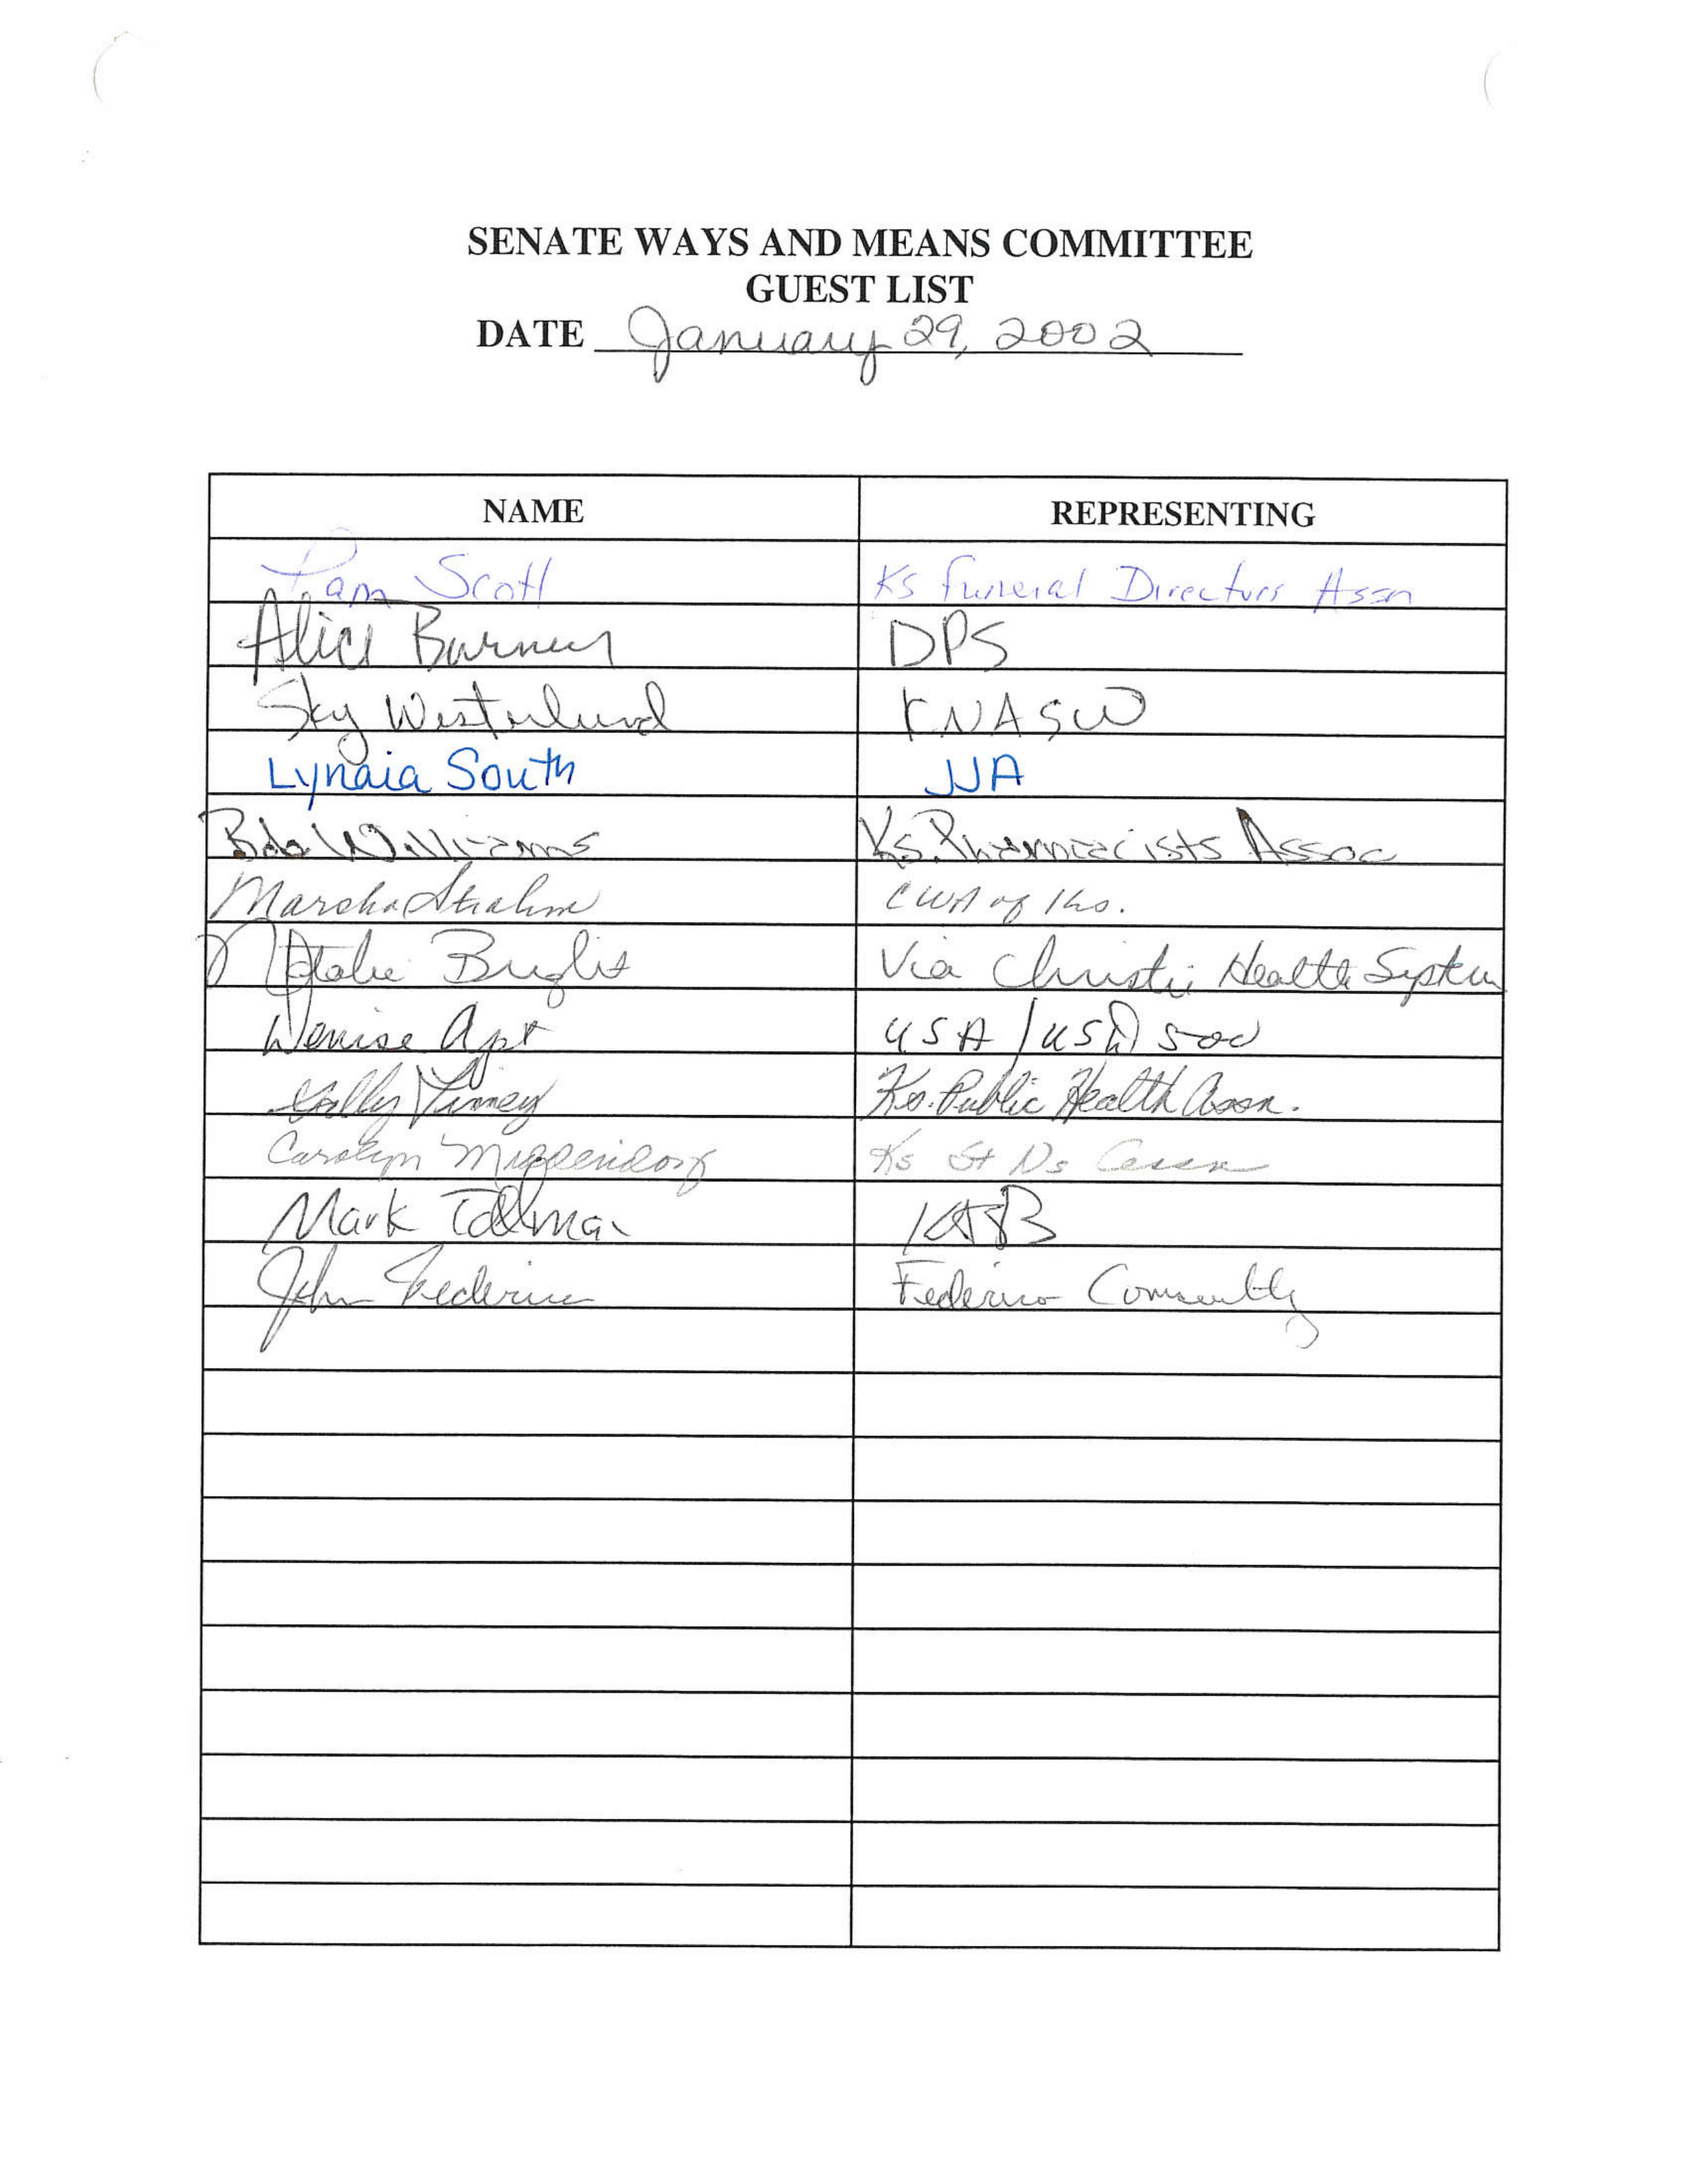 SENATE WAYS AND MEANS COMMITTEE
GUEST LIST
DATE January 29, 2002
NAME REPRESENTING
Pam Scott Ks Funeral Directors Assn
Alice DPS
Sky Westerlund KNASW
Lynaia South JJA
Bob Williams Ks. Pharmacists Assoc
Marsha Strahm CWA of Ks.
Natalie Bright Via Christi Health System
Denise Apt USA/USD 500
Sally Finney Ks. Public Health Assn.
Carolyn Middendorf Ks St Ns Assn
Mark Tallman KASB
John Federico Federico Consulting